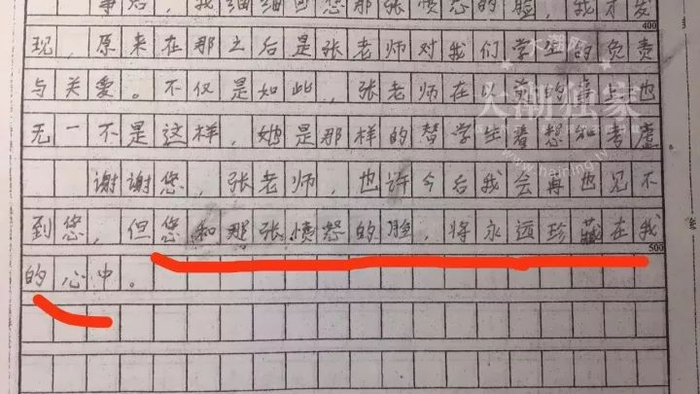 事后，我细细回忆那张愤怒的脸，我才发
400
现，原来在那之后是张老师对我们学生的负责
与关爱。不仅是如此，张老师在以前的事上也
无一不是这样，她是那样的替学生着想和考虑。
谢谢您，张老师，也许今后我会再也见不
到您，但您和那张愤怒的脸，将永远珍藏在我
500
的心中。
大潮独家
www.nanning.tv